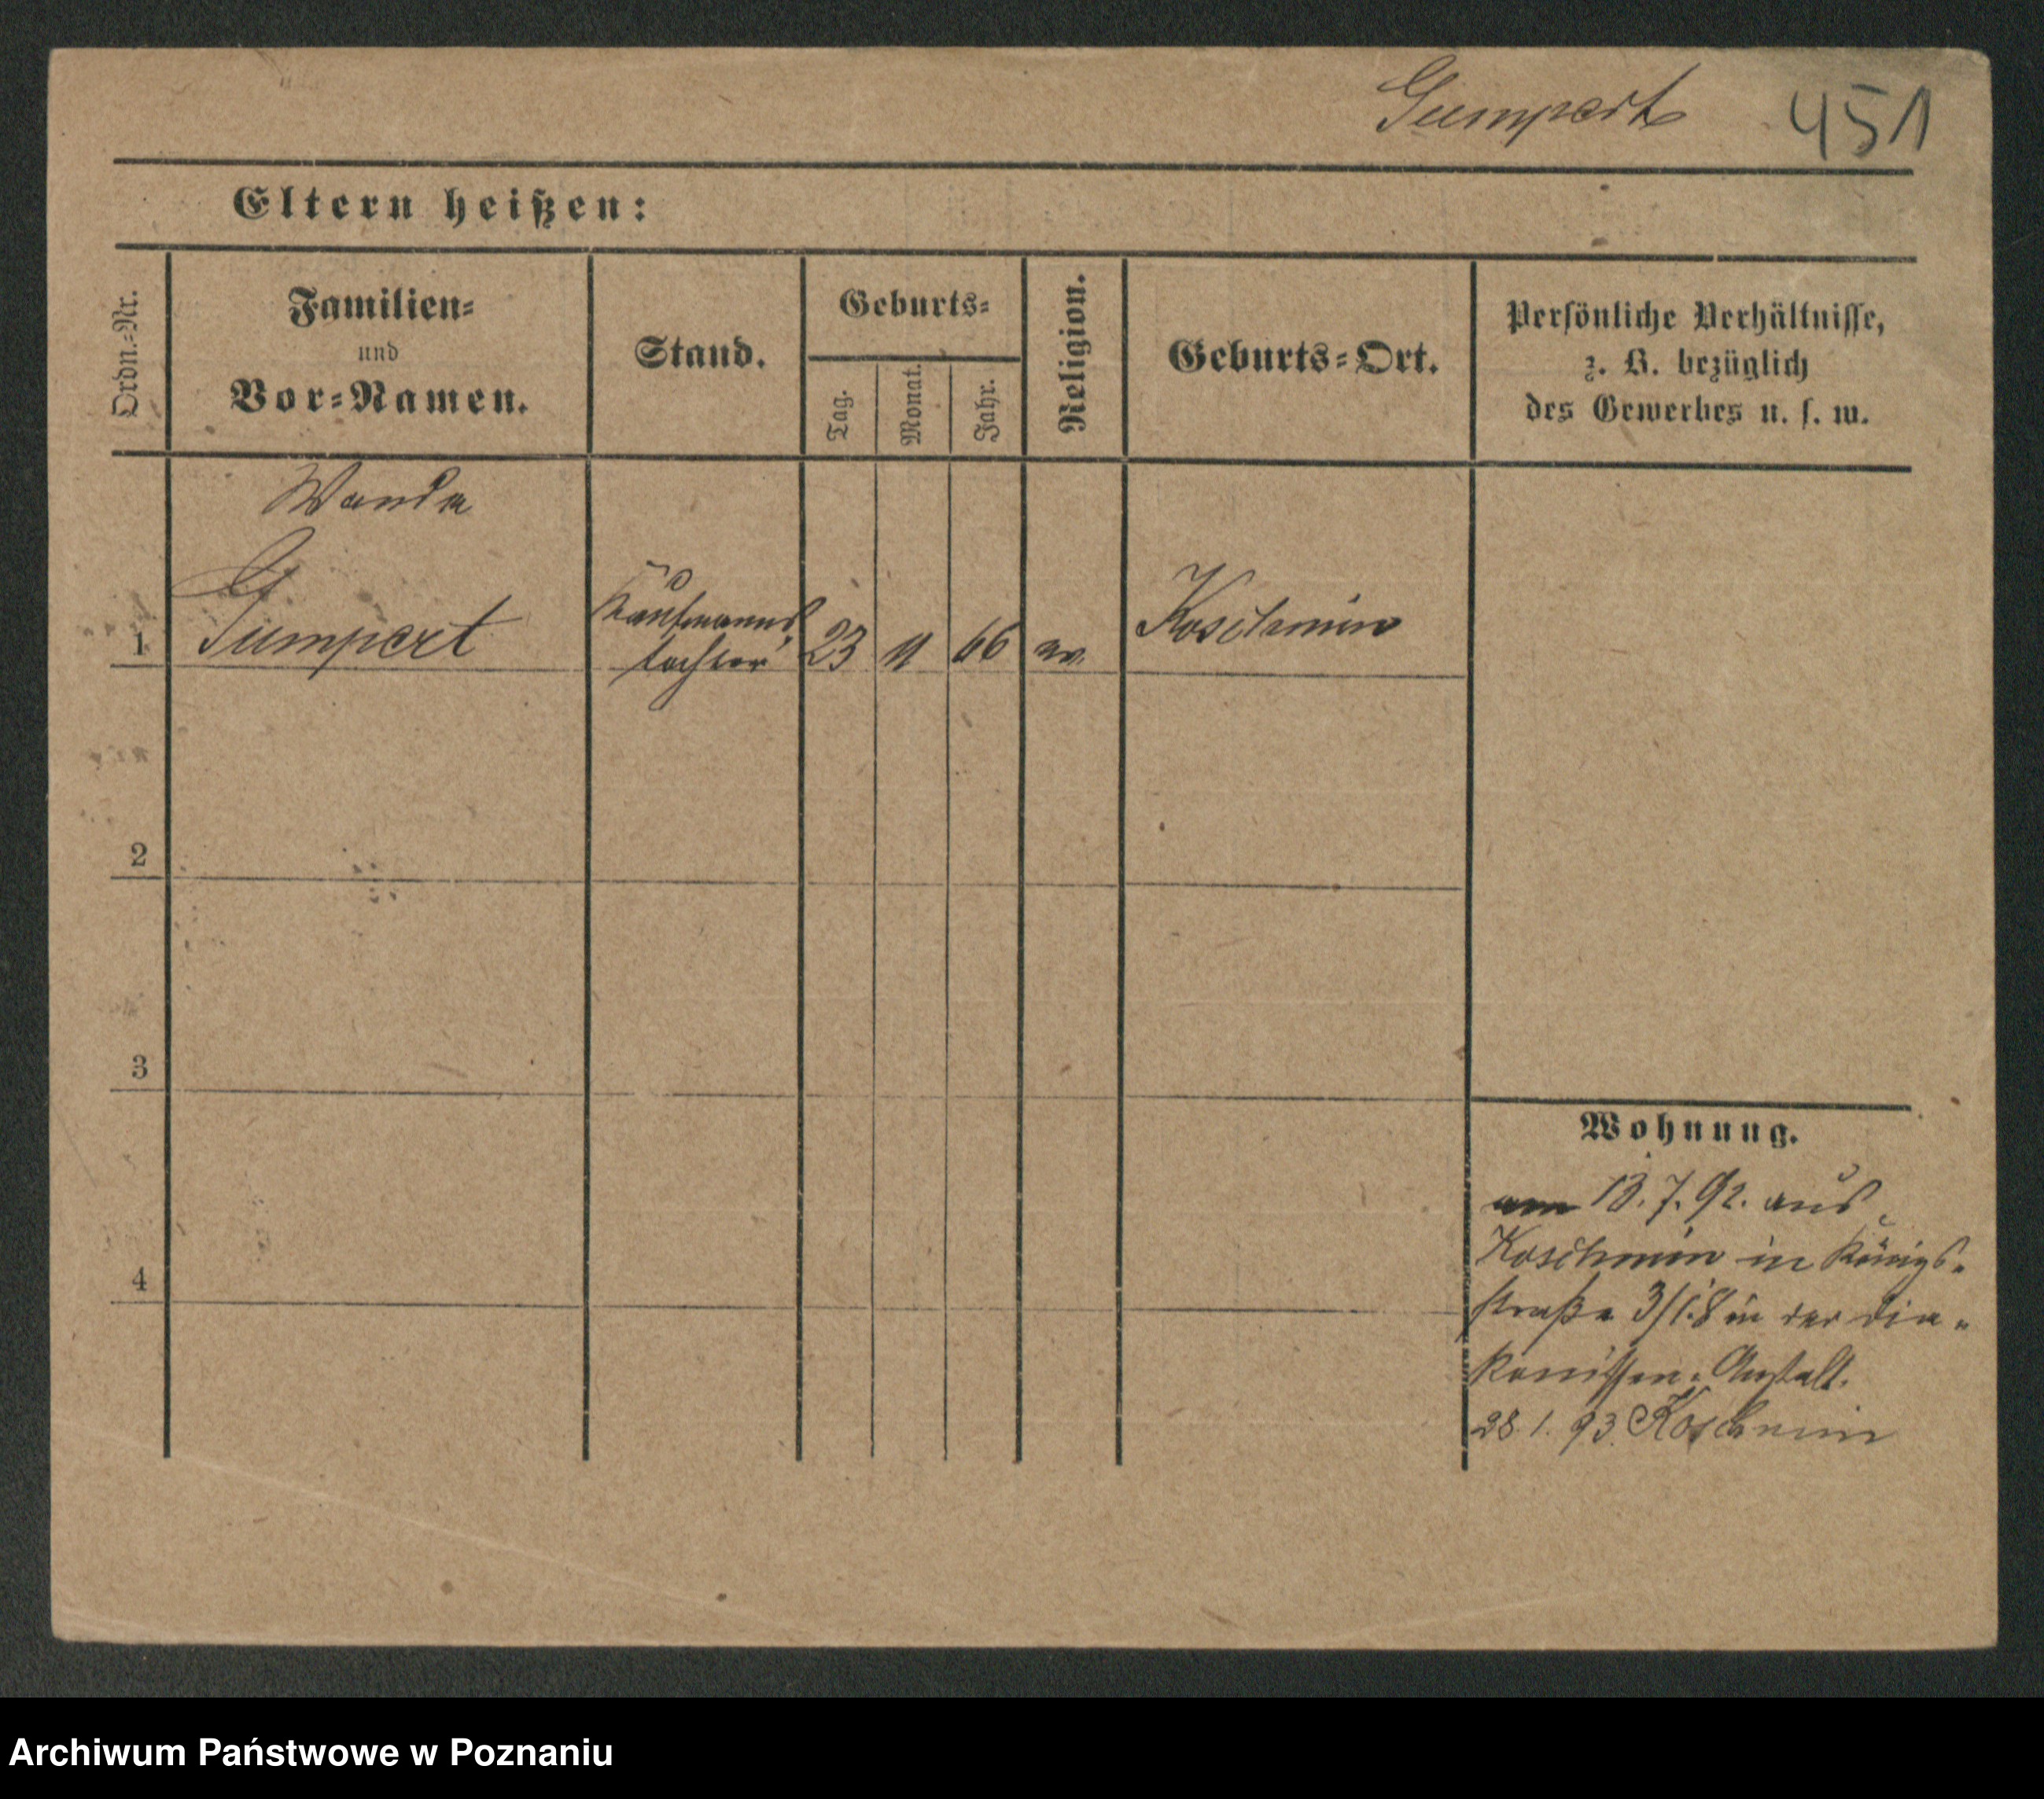 Gumpert 451
Eltern heißen:
Ordn.-Nr.
Familien-
und
Vor-Namen.
Stand.
Geburts-
Tag.
Monat.
Jahr.
Religion.
Geburts-Ort.
Persönliche Verhältnisse,
z. B. bezüglich
des Gewerbes u. s. w.
Wanda
1 Gumpert
Kaufmanns
tochter
23 66 ev. Koschmin
2
3
4
Wohnung.
am 13. 7. 92. aus
Koschmin in Königs-
straße 3/ in der Dia-
konissen-Anstalt.
28. 1. 93. Koschmin
Archiwum Państwowe w Poznaniu